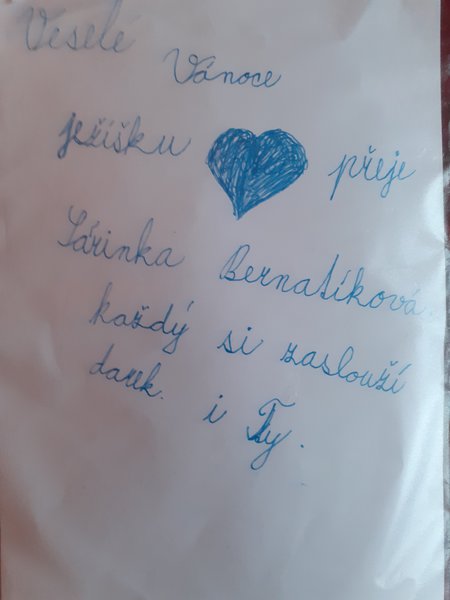 Veselé
Vánoce
ježíšku přeje
Sárinka Bernatíková.
každý si zaslouží
darek. i Ty.